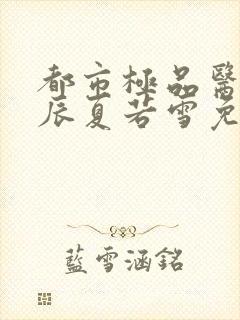 都市極品醫
辰夏若雪免
藍雪涵銘